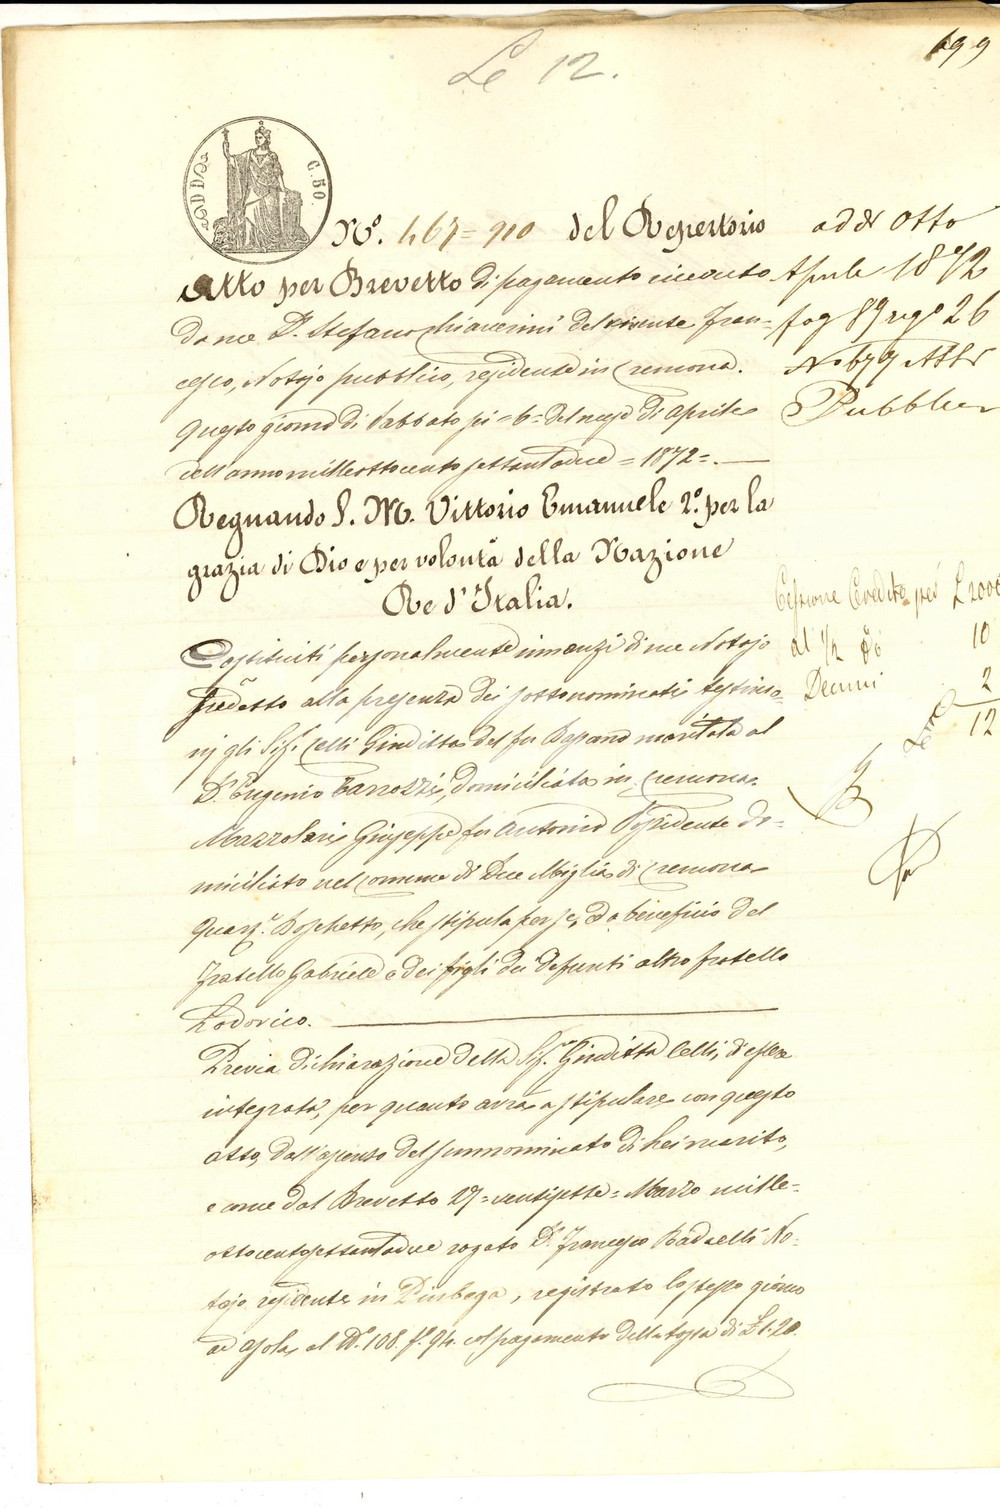 Le 12.
699
C. 50.
N.° 467=910 del Repertorio
Atto per Brevetto di pagamento ricevuto
da me D.r Stefano Chiaverini del vivente Fran-
cesco, Notajo pubblico, residente in Cremona.
Questo giorno di Sabbato sei =6= del mese di Aprile
dell'anno mille ottocento settantadue =1872=.
Regnando S. M. Vittorio Emanuele 2.° per la
grazia di Dio e per volontà della Nazione
Re d'Italia.
Costituiti personalmente innanzi di me Notajo
predetto alla presenza dei sottonominati testimo-
nj gli Sig.i Celli Giuditta del fu maritata al
D.r Eugenio Tarozzi, domiciliata in Cremona.
Mazzolari Giuseppe fu Antonio possidente do-
miciliato nel comune di Due Miglia di Cremona
Quart.e Boschetto, che stipula per se, ed a beneficio del
fratello Gabriele e dei figli del defunto altro fratello
Lodovico.
Previa dichiarazione della Sig.a Giuditta Celli, di essere
integrata, per quanto avrà a stipulare con questo
atto, dall'assenso del summominato di lei marito,
come dal Brevetto 27=ventisette=Marzo mille-
ottocentosettantadue rogato D.r Francesco No-
tajo residente in registrato lo stesso giorno
ad Asola, al N.° 108. f.° 94. col pagamento della tassa di £ 1.20.
addì otto
Aprile 1872
fog 89 reg° 26
N° 679 Atti
Pubblici
Cessione Credito per £ 2000
al 1/2 % 10
Decimi 2
12